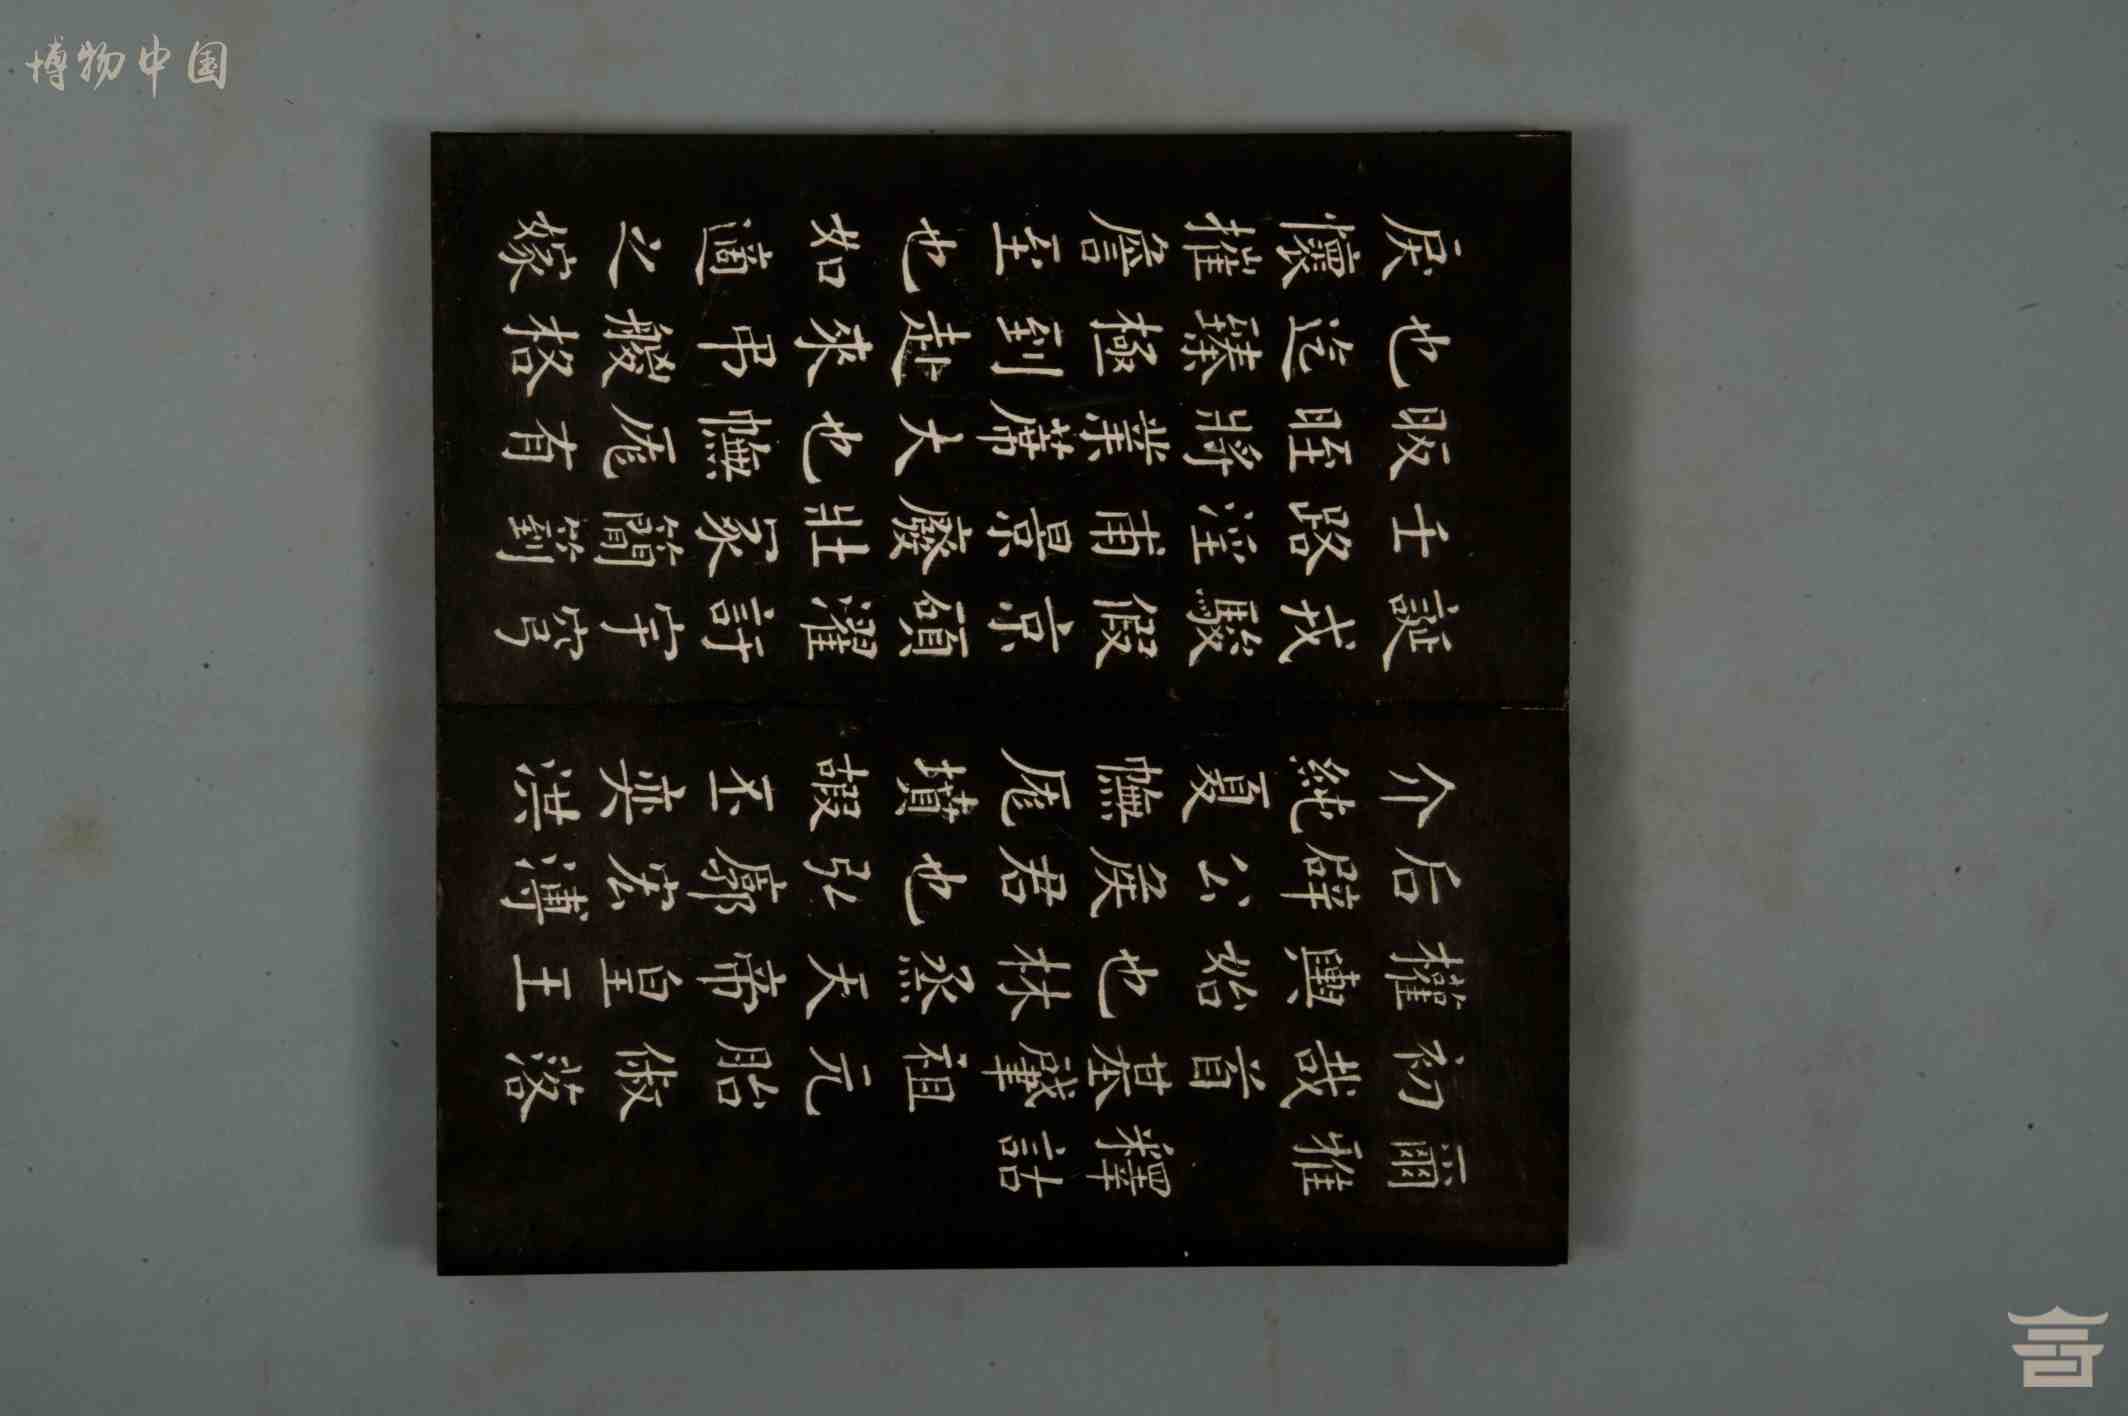 爾雅 釋詁
初哉首基肇祖元胎俶落
權輿始也林烝天帝皇王
后辟公侯君也弘廓宏溥
介純夏幠厖墳嘏丕奕洪
誕戎駿假京碩濯訏宇穹
壬路淫甫景廢壯冢簡箌
昄晊將業蓆大也幠厖有
也迄臻極到赴來弔艐格
戾懷摧詹至也如適之嫁
博物中国